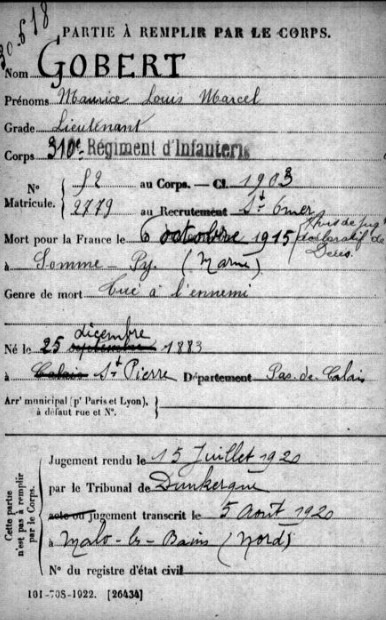 30.618
PARTIE À REMPLIR PAR LE CORPS.
Nom GOBERT
Prénoms Maurice Louis Marcel
Grade Lieutenant
Corps 310e Régiment d'Infanterie
N° Matricule. 52 au Corps. — Cl. 1903
2779 au Recrutement St Omer
Mort pour la France le 6 octobre 1915 déclaratif de Décès
à Somme-Py. (Marne)
Genre de mort Tué à l'ennemi
Né le 25 septembre décembre 1883
à Calais St Pierre Département Pas-de-Calais
Arrt municipal (pr Paris et Lyon),
à défaut rue et N°.
Cette partie n'est pas à remplir par le Corps.
Jugement rendu le 15 Juillet 1920
par le Tribunal de Dunkerque
acte ou jugement transcrit le 5 Août 1920
à Malo-les-Bains (Nord)
N° du registre d'état civil
101-708-1922. [26434]